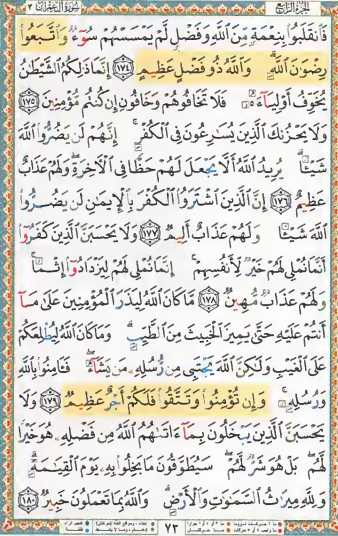 الجزء الرابع سورة آل عمران ٣
فَٱنقَلَبُوا۟ بِنِعْمَةٍ مِّنَ ٱللَّهِ وَفَضْلٍ لَّمْ يَمْسَسْهُمْ سُوٓءٌ وَٱتَّبَعُوا۟
رِضْوَٰنَ ٱللَّهِ ۗ وَٱللَّهُ ذُو فَضْلٍ عَظِيمٍ ١٧٤ إِنَّمَا ذَٰلِكُمُ ٱلشَّيْطَٰنُ
يُخَوِّفُ أَوْلِيَآءَهُۥ فَلَا تَخَافُوهُمْ وَخَافُونِ إِن كُنتُم مُّؤْمِنِينَ ١٧٥
وَلَا يَحْزُنكَ ٱلَّذِينَ يُسَٰرِعُونَ فِى ٱلْكُفْرِ ۚ إِنَّهُمْ لَن يَضُرُّوا۟ ٱللَّهَ
شَيْـًٔا ۗ يُرِيدُ ٱللَّهُ أَلَّا يَجْعَلَ لَهُمْ حَظًّا فِى ٱلْـَٔاخِرَةِ ۖ وَلَهُمْ عَذَابٌ
عَظِيمٌ ١٧٦ إِنَّ ٱلَّذِينَ ٱشْتَرَوُا۟ ٱلْكُفْرَ بِٱلْإِيمَٰنِ لَن يَضُرُّوا۟
ٱللَّهَ شَيْـًٔا وَلَهُمْ عَذَابٌ أَلِيمٌ ١٧٧ وَلَا يَحْسَبَنَّ ٱلَّذِينَ كَفَرُوٓا۟
أَنَّمَا نُمْلِى لَهُمْ خَيْرٌ لِّأَنفُسِهِمْ ۚ إِنَّمَا نُمْلِى لَهُمْ لِيَزْدَادُوٓا۟ إِثْمًا ۚ
وَلَهُمْ عَذَابٌ مُّهِينٌ ١٧٨ مَّا كَانَ ٱللَّهُ لِيَذَرَ ٱلْمُؤْمِنِينَ عَلَىٰ مَآ
أَنتُمْ عَلَيْهِ حَتَّىٰ يَمِيزَ ٱلْخَبِيثَ مِنَ ٱلطَّيِّبِ ۗ وَمَا كَانَ ٱللَّهُ لِيُطْلِعَكُمْ
عَلَى ٱلْغَيْبِ وَلَٰكِنَّ ٱللَّهَ يَجْتَبِى مِن رُّسُلِهِۦ مَن يَشَآءُ ۖ فَـَٔامِنُوا۟ بِٱللَّهِ
وَرُسُلِهِۦ ۚ وَإِن تُؤْمِنُوا۟ وَتَتَّقُوا۟ فَلَكُمْ أَجْرٌ عَظِيمٌ ١٧٩ وَلَا
يَحْسَبَنَّ ٱلَّذِينَ يَبْخَلُونَ بِمَآ ءَاتَىٰهُمُ ٱللَّهُ مِن فَضْلِهِۦ هُوَ خَيْرًا
لَّهُم ۖ بَلْ هُوَ شَرٌّ لَّهُمْ ۖ سَيُطَوَّقُونَ مَا بَخِلُوا۟ بِهِۦ يَوْمَ ٱلْقِيَٰمَةِ ۗ
وَلِلَّهِ مِيرَٰثُ ٱلسَّمَٰوَٰتِ وَٱلْأَرْضِ ۗ وَٱللَّهُ بِمَا تَعْمَلُونَ خَبِيرٌ ١٨٠
٧٣